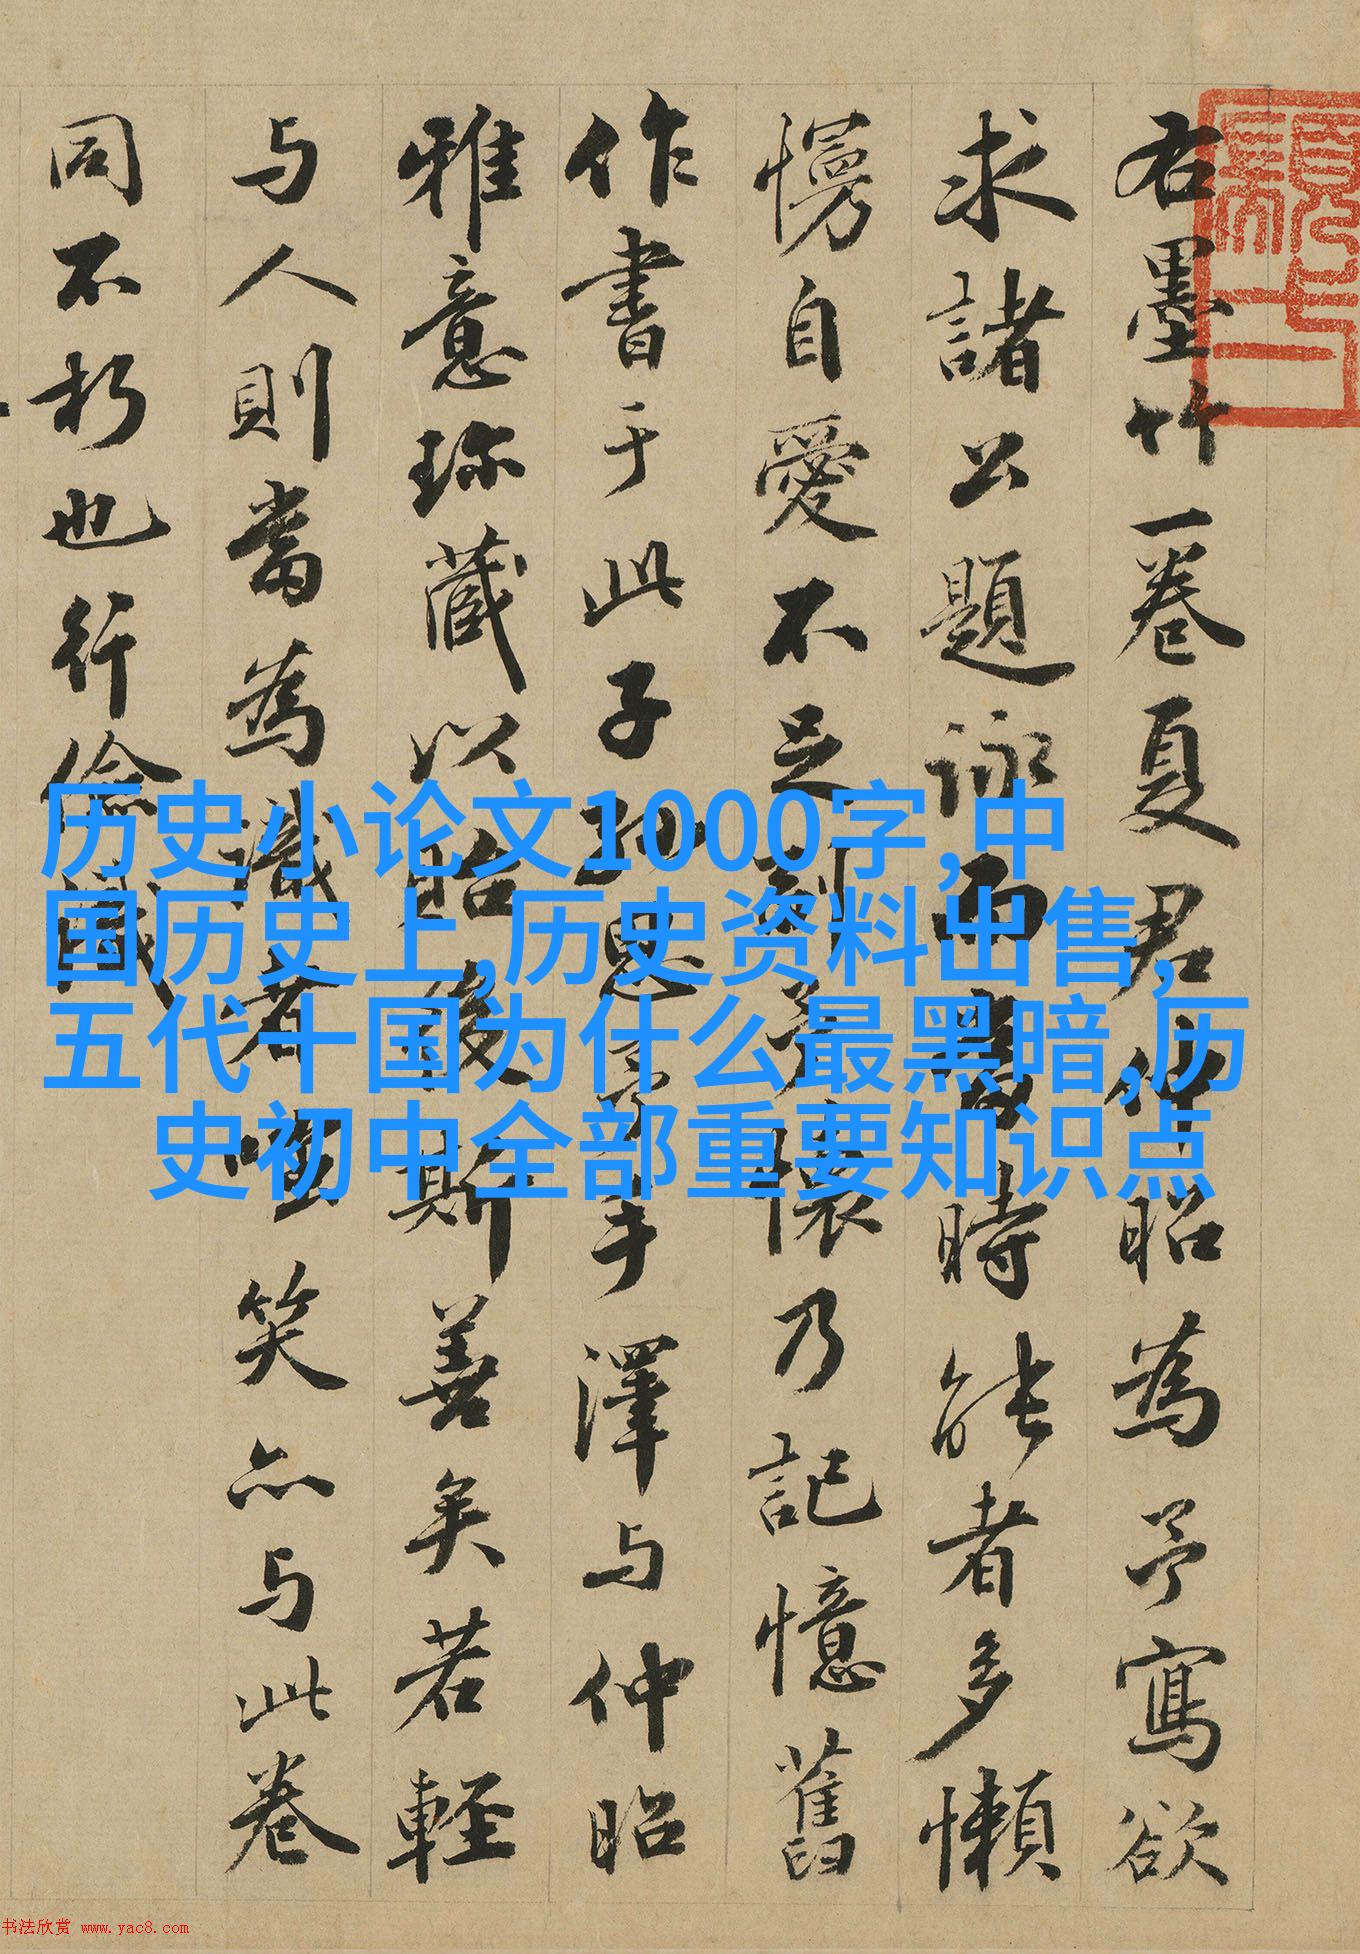 右墨竹一卷夏君仲昭為予寫欲
求諸公題詠而時能者多懶
慢自愛不足副予懷乃記憶舊
作書于此子孫思予手澤与仲昭
雅意珎藏以貽後斯善矣若輕
与人則當為識者嗤笑亦与此卷
同不朽也行儉識
历史小论文1000字,中
国历史上,历史资料出售,
五代十国为什么最黑暗,历
史初中全部重要知识点
书法欣赏 www.yac8.com